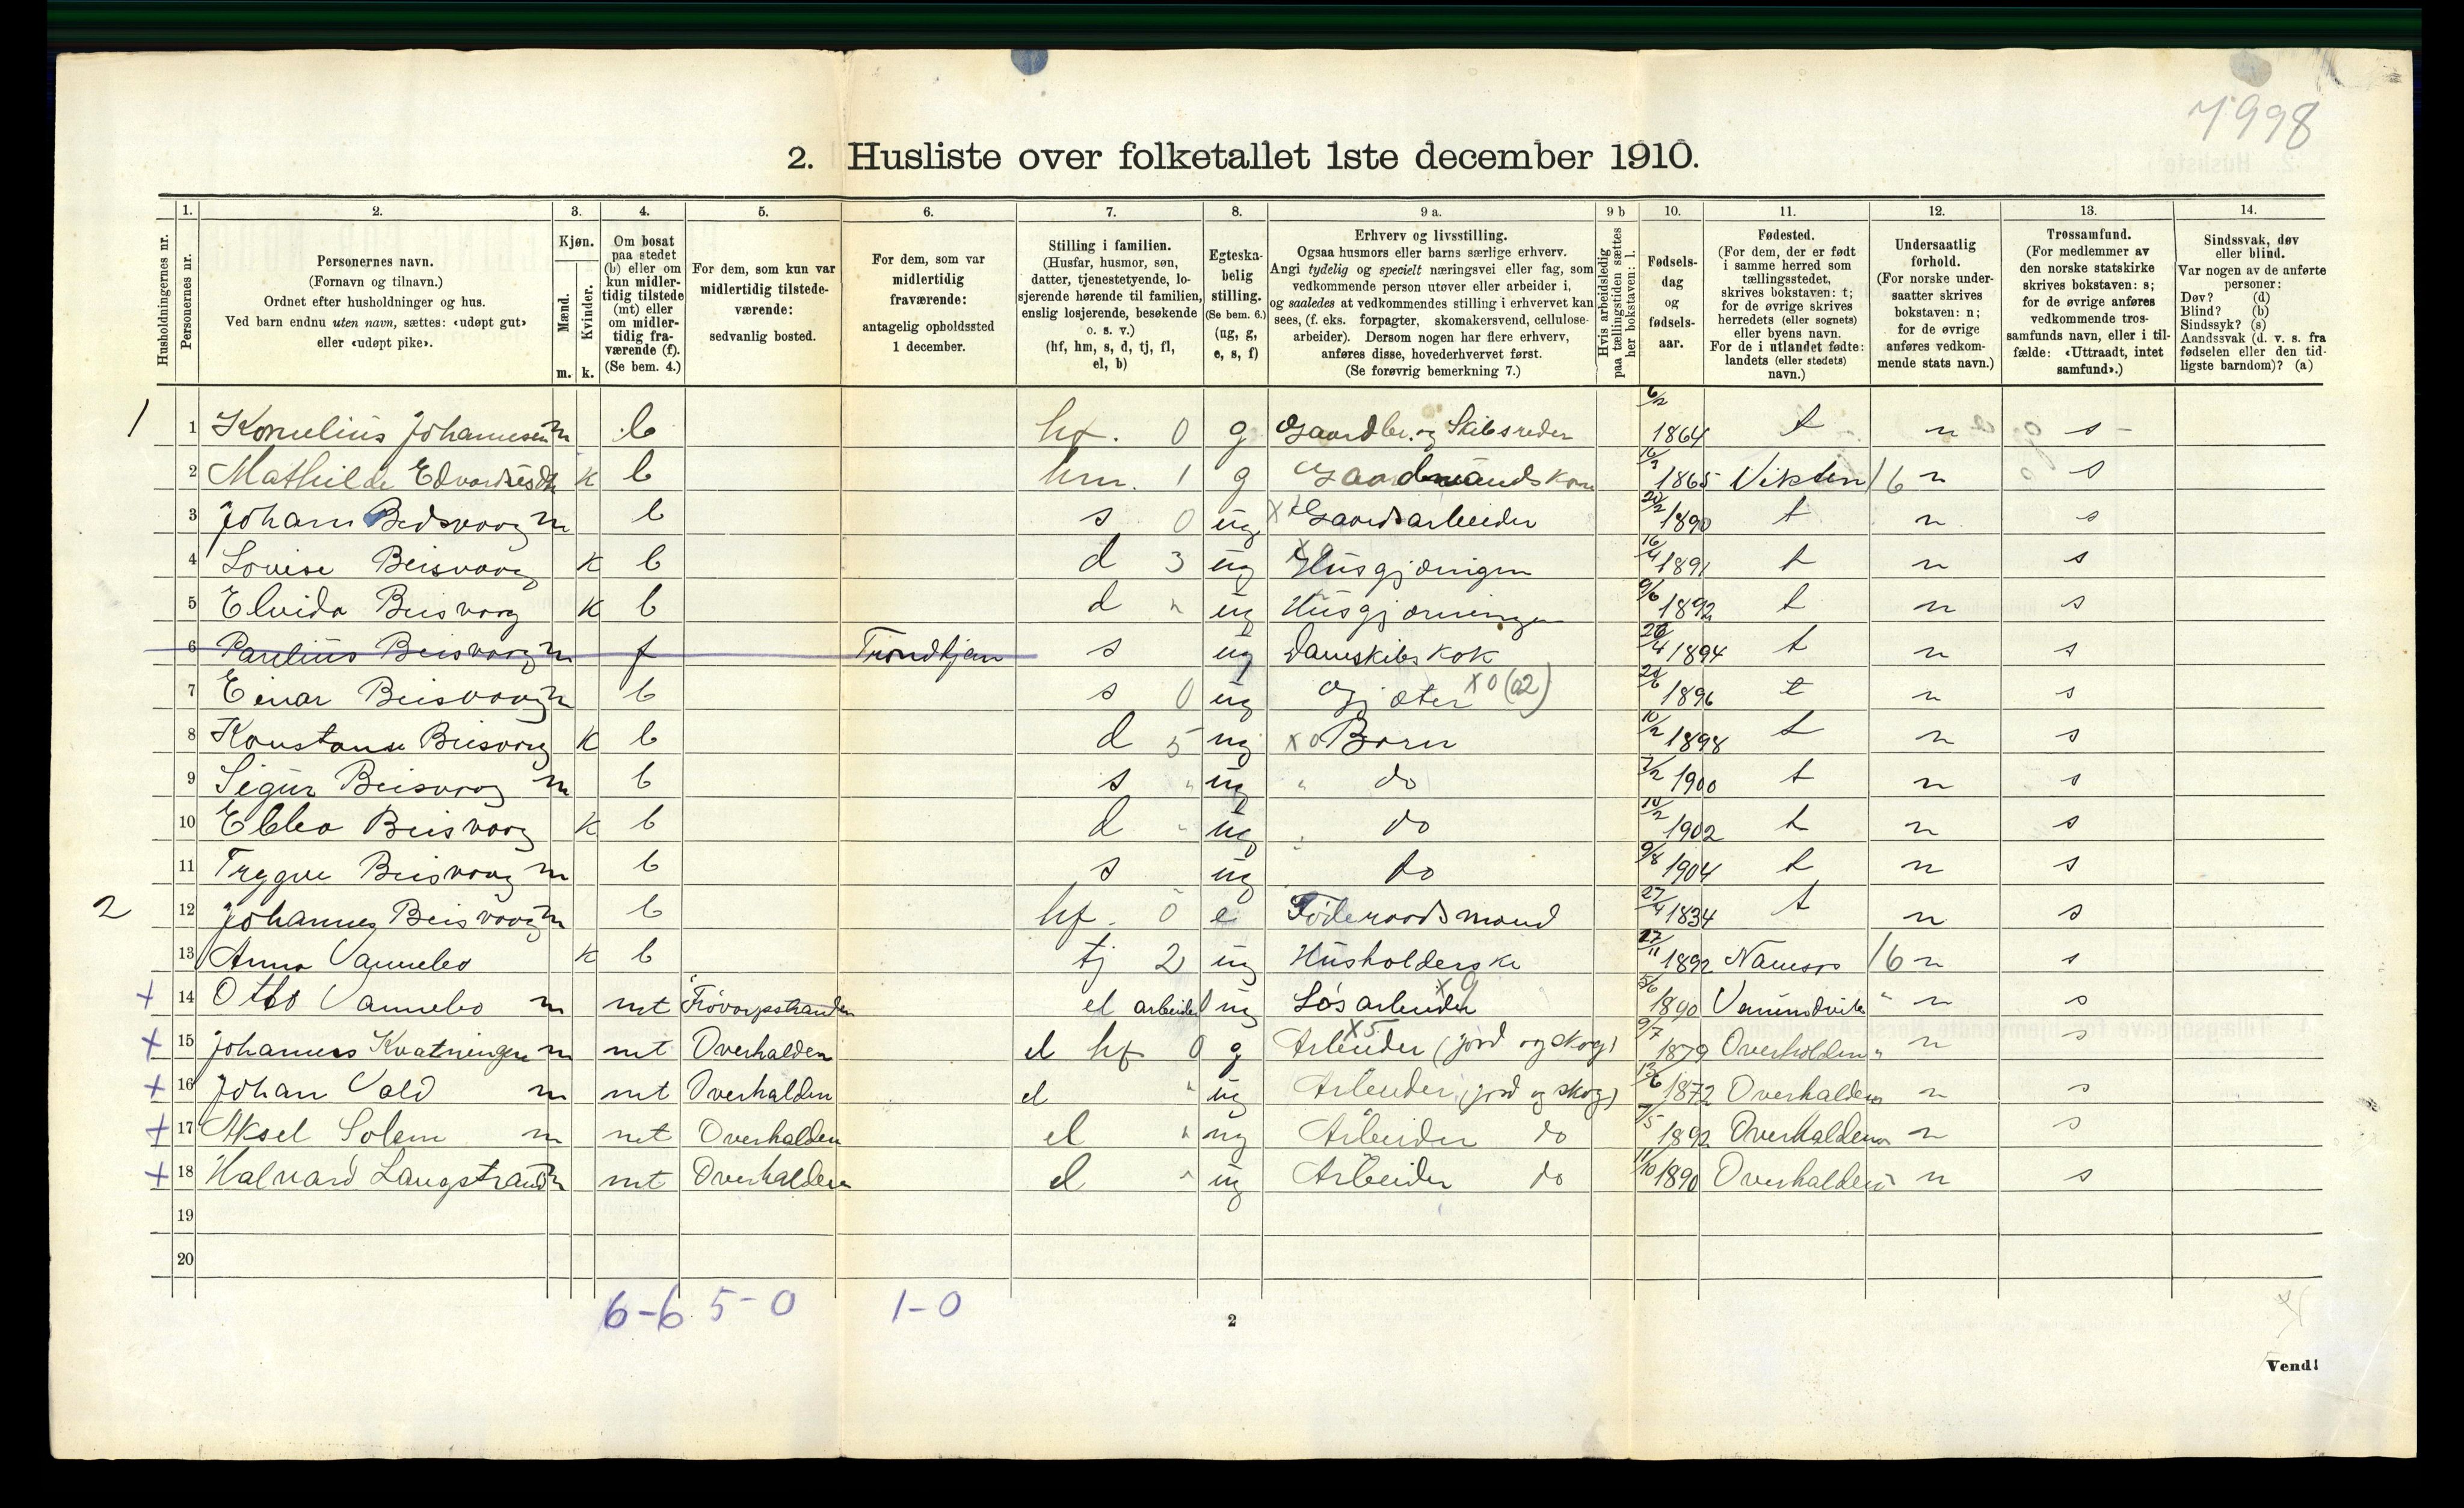 7998
2. Husliste over folketallet 1ste december 1910.
Husholdningernes nr.
1. Personernes nr.
2. Personernes navn.
(Fornavn og tilnavn.)
Ordnet efter husholdninger og hus.
Ved barn endnu uten navn, sættes: «udøpt gut»
eller «udøpt pike».
3. Kjøn.
Mænd. m.
Kvinder. k.
4. Om bosat
paa stedet
(b) eller om
kun midler-
tidig tilstede
(mt) eller
om midler-
tidig fra-
værende (f).
(Se bem. 4.)
5. For dem, som kun var
midlertidig tilstede-
værende:
sedvanlig bosted.
6. For dem, som var
midlertidig
fraværende:
antagelig opholdssted
1 december.
7. Stilling i familien.
(Husfar, husmor, søn,
datter, tjenestetyende, lo-
sjerende hørende til familien,
enslig losjerende, besøkende
o. s. v.)
(hf, hm, s, d, tj, fl,
el, b)
8. Egteska-
belig
stilling.
(Se bem. 6.)
(ug, g,
e, s, f)
9 a. Erhverv og livsstilling.
Ogsaa husmors eller barns særlige erhverv.
Angi tydelig og specielt næringsvei eller fag, som
vedkommende person utøver eller arbeider i,
og saaledes at vedkommendes stilling i erhvervet kan
sees, (f. eks. forpagter, skomakersvend, cellulose-
arbeider). Dersom nogen har flere erhverv,
anføres disse, hovederhvervet først.
(Se forøvrig bemerkning 7.)
9 b Hvis arbeidsledig
paa tællingstiden sættes
her bokstaven: l.
10. Fødsels-
dag
og
fødsels-
aar.
11. Fødested.
(For dem, der er født
i samme herred som
tællingsstedet,
skrives bokstaven: t;
for de øvrige skrives
herredets (eller sognets)
eller byens navn.
For de i utlandet fødte:
landets (eller stedets)
navn.)
12. Undersaatlig
forhold.
(For norske under-
saatter skrives
bokstaven: n;
for de øvrige
anføres vedkom-
mende stats navn.)
13. Trossamfund.
(For medlemmer av
den norske statskirke
skrives bokstaven: s;
for de øvrige anføres
vedkommende tros-
samfunds navn, eller i til-
fælde: «Uttraadt, intet
samfund».)
14. Sindssvak, døv
eller blind.
Var nogen av de anførte
personer:
Døv? (d)
Blind? (b)
Sindssyk? (s)
Aandssvak (d. v. s. fra
fødselen eller den tid-
ligste barndom)? (a)
1 1 Kornelius Johannesen m b hf. 0 g Gaardbr. og Skibsreder 6/2 1864 t n s
2 Mathilde k b hm. 1 g Gaardmandskone 1865 Vikten 16 n s
3 Johan m b s 0 ug Gaardsarbeider 20/2 1890 t n s
4 Lovise Beisvaag k b d 3 ug Husgjerningen 16/4 1891 t n s
5 Elvida Beisvaag k b d " ug Husgjerningen 9/6 1892 t n s
6 Paulius Beisvaag m f Trondhjem s ug Dampskibskok 1894 t n s
7 Einar Beisvaag m b s 0 ug Gjæter x0 (a2) 1896 t n s
8 Konstanse Beisvaag k b d 5 ug x0 Barn 10/2 1898 t n s
9 Sigur Beisvaag m b s " ug " do 7/2 1900 t n s
10 Ebba Beisvaag k b d " ug " do 10/2 1902 t n s
11 Trygve Beisvaag m b s ug do 9/8 1904 t n s
2 12 Johannes Beisvaag m b hf. 0 e Föderaadsmand 27/4 1834 t n s
13 Anna Vannebo k b tj 2 ug Husholderske 27/11 1892 Namsos 16 n s
+ 14 Otto Vannebo m mt el arbeider 0 ug Løsarbeider 5/6 1890 " n s
+ 15 Johannes Kvatningen m mt Overhalden el hf 0 g Arbeider (jord og skog) x5 9/7 1879 Overhalden " n s
+ 16 Johan Vold m mt Overhalden el " ug Arbeider (jord og skog) 13/6 1872 Overhalden n s
+ 17 Aksel Solem m mt Overhalden el " ug Arbeider do 7/5 1892 Overhalden n s
+ 18 Halvard Langstrand m mt Overhalden el " ug Arbeider do 11/10 1890 Overhalden n s
19
20
6-6 5-0 1-0
2
Vend!